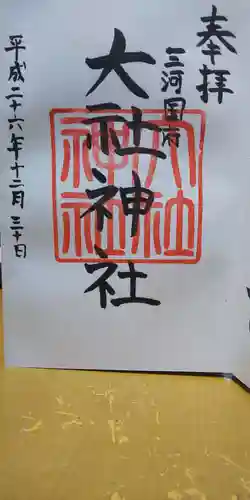 奉拝
三河国府
大社神社
大社
神社
平成二十六年十二月三十日